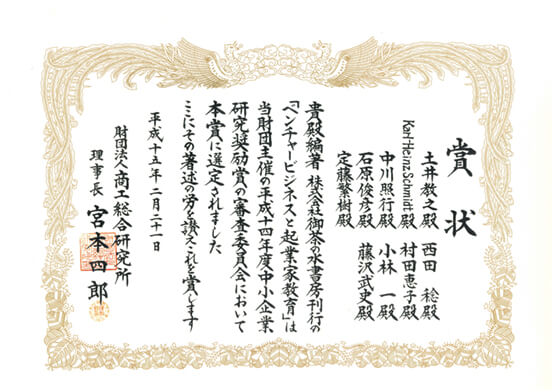 賞状
土井教之殿　西田　稔殿
Karl Heinz Schmidt殿　村田恵子殿
中川照行殿　小林　一殿
石原俊彦殿　藤沢武史殿
定藤繁樹殿
貴殿編著　株式会社御茶の水書房刊行の
「ベンチャービジネスと起業家教育」は
当財団主催の平成十四年度中小企業
研究奨励賞の審査委員会において
本賞に選定されました
ここにその著述の労を讃えこれを賞します
平成十五年二月二十一日
財団法人商工総合研究所
理事長　宮本四郎